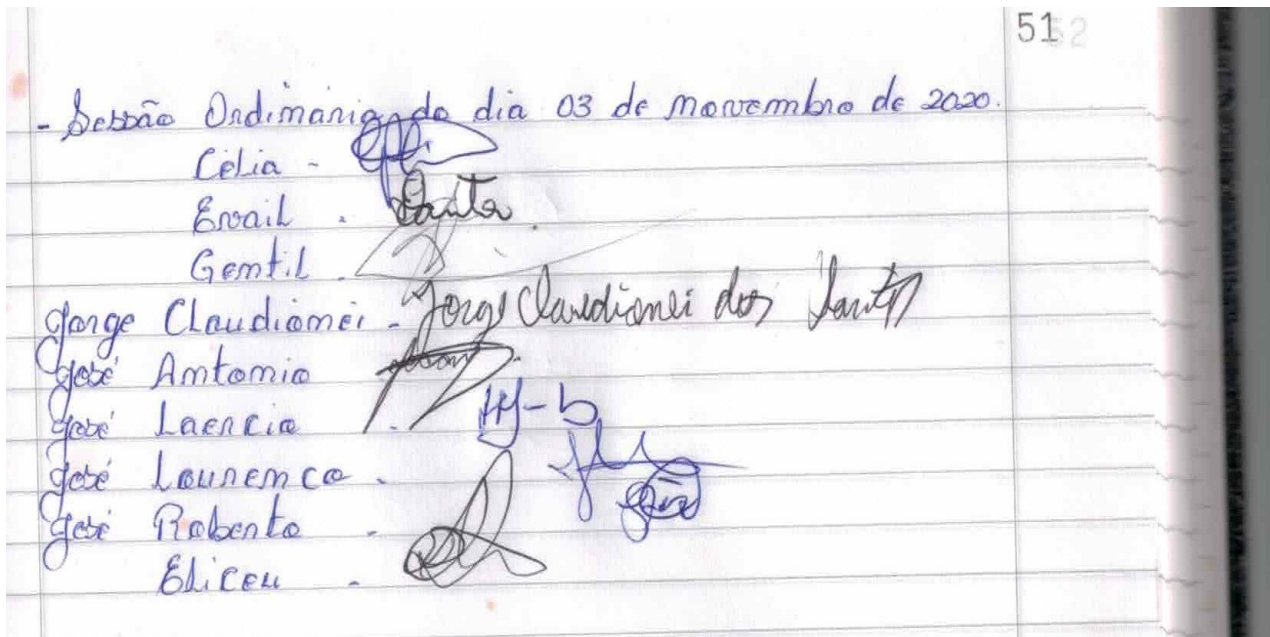 51
- Sessão Ordinária do dia 03 de novembro de 2020.
Célia -
Evail .
Gentil .
Jorge Claudionei - Jorge Claudionei dos Santos
José Antonio
José Laercio .
José Lourenço .
José Roberto -
Eliceu -